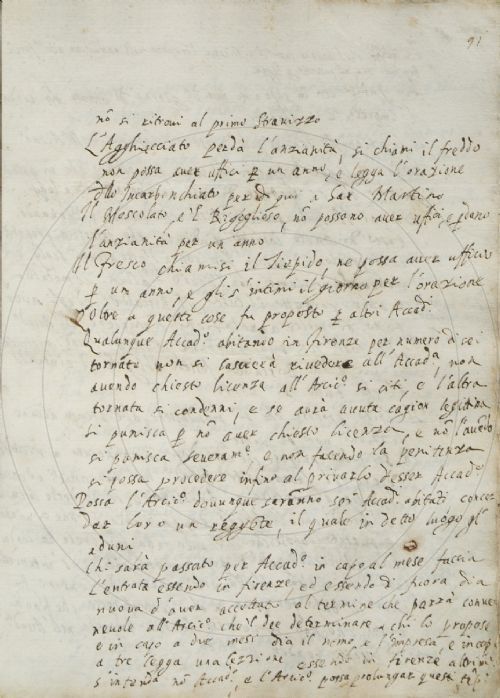 91
nõ si ritroui al primo Strauizzo
L'Agghiacciato perda l'anzianità, si chiami il freddo
non possa auer uffici p un anno, e legga l'orazione
dello Incarbonchiato per di qui a San Martino
Il Moscolato, e 'l Rigoglioso, nõ possono auer uffici, e perdano
l'anzianità per un anno
Il Fresco chiamisi il Tiepido, ne possa auer ufficio
p un anno, e gli s'intimi il giorno per l'orazione
Oltre a queste cose fu proposto p altri Accad.i
Qualunque Accad.o abitante in firenze per numero di sei
tornate non si lascerà riuedere all'Accad.a, non
auendo chiesto licenza all'Arcic.o si citi, e l'altra
tornata si condenni, e se aurà auuta cagion legittima
si punisca p nõ auer chiesto licenza, e nõ l'auendo
si punisca seueram.te e non facendo la penitenza
si possa procedere infino al priuarlo d'esser Accad.o
Possa l'Arcic.o douunque saranno sei Accad.i abitanti conce
der loro un reggente, il quale in detto luogo gl'
aduni
Chi sarà passato per Accad.o in capo al mese faccia
l'entrata essendo in firenze, ed essendo di fuora dia
nuoua d'auer accettato al termine che parrà conue
neuole all'Arcic.o che 'l dee determinare a chi lo propose
e in caso a due mesi dia il nome, e l'impresa, e in capo
a tre legga una lezzione essendo in firenze altrim.i
s'intenda nõ Accad.o, e l'Arcic.o possa prolungar questi